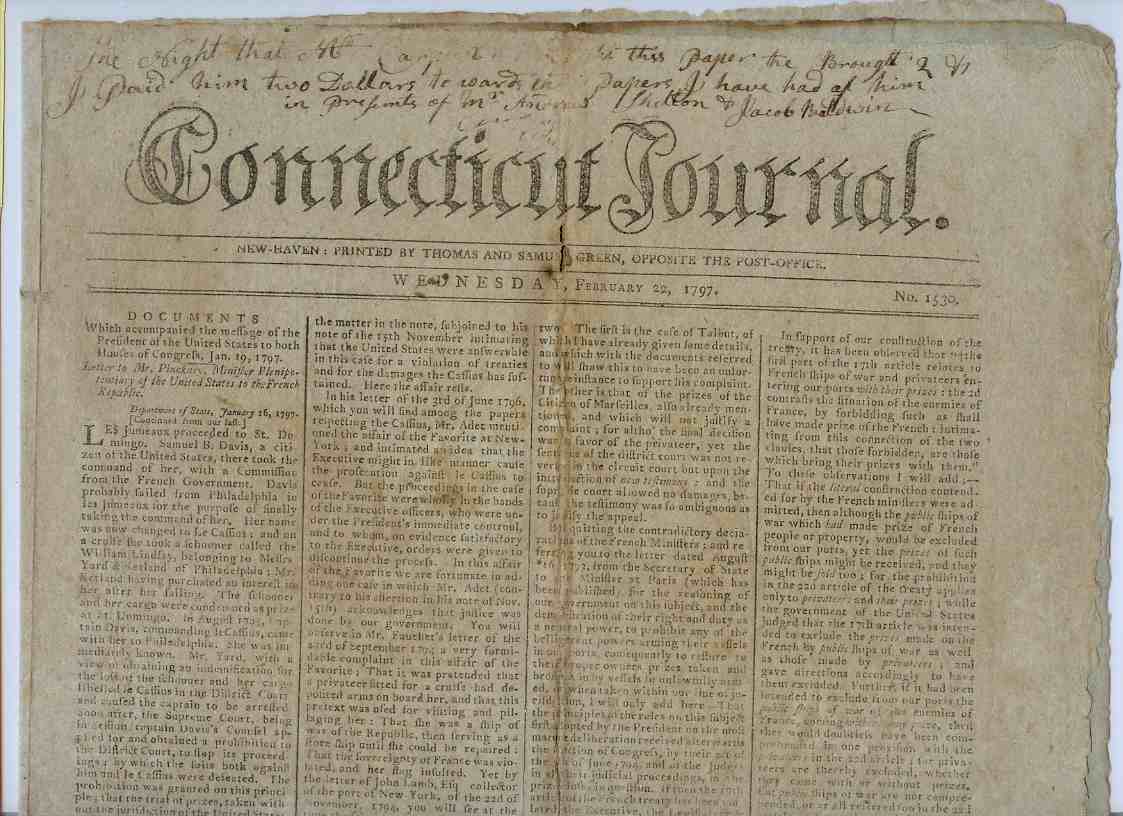 The Night that Mr this Paper the Brought 2 &
I Paid him two Dollars towards Papers I have had of him
in Presents of Mr Shelton & Jacob Baldwin
Connecticut Journal.
NEW-HAVEN: PRINTED BY THOMAS AND SAMU GREEN, OPPOSITE THE POST-OFFICE.
WEDNESDAY, FEBRUARY 22, 1797.
No. 1530.
DOCUMENTS
Which accompanied the message of the
President of the United States to both
Houses of Congress, Jan. 19, 1797.
Letter to Mr. Pinckney, Minister Plenipo-
tentiary of the United States to the French
Republic.
Department of State, January 16, 1797.
[Continued from our last.]
LES Jumeaux proceeded to St. Do-
mingo. Samuel B. Davis, a citi-
zen of the United States, there took the
command of her, with a Commission
from the French Government. Davis
probably sailed from Philadelphia in
les Jumeaux for the purpose of finally
taking the command of her. Her name
was now changed to Le Cassius; and on
a cruise she took a schooner called the
William Lindsay, belonging to Messrs.
Yard & Ketland of Philadelphia; Mr.
Ketland having purchased an interest in
her after her sailing. The schooner
and her cargo were condemned as prize
at St. Domingo. In August 1795, cap-
tain Davis, commanding le Cassius, came
with her to Philadelphia. She was im-
mediately known. Mr. Yard, with a
view of obtaining an indemnification for
the loss of the schooner and her cargo
libelled le Cassius in the District Court
and caused the captain to be arrested
soon after, the Supreme Court, being
in session, captain Davis's Counsel ap-
plied for and obtained a prohibition to
the District Court, to stop its proceed-
ings; by which the suits both against
him and le Cassius were defeated. The
prohibition was granted on this princi-
ple; that the trial of prizes, taken with-
out the jurisdiction of the United States
the matter in the note, subjoined to his
note of the 15th November intimating
that the United States were answerable
in this case for a violation of treaties
and for the damages the Cassius has sus-
tained. Here the affair rests.
In his letter of the 3rd of June 1796,
which you will find among the papers
respecting the Cassius, Mr. Adet menti-
oned the affair of the Favorite at New-
York; and intimated an idea that the
Executive might in like manner cause
the prosecution against le Cassius to
cease. But the proceedings in the case
of the Favorite were wholly in the hands
of the Executive officers, who were un-
der the President's immediate controul,
and to whom, on evidence satisfactory
to the Executive, orders were given to
discontinue the process. In this affair
of the Favorite we are fortunate in ad-
ding one case in which Mr. Adet (con-
trary to his assertion in his note of Nov.
15th) acknowledges that justice was
done by our government. You will
observe in Mr. Fauchet's letter of the
23d of September 1794 a very formi-
dable complaint in this affair of the
Favorite; That it was pretended that
a privateer fitted for a cruise had de-
posited arms on board her, and that this
pretext was used for visiting and pil-
laging her: That she was a ship of
war of the Republic, then serving as a
store ship until she could be repaired:
That the sovereignty of France was vio-
lated, and her flag insulted. Yet by
the letter of John Lamb, Esq. collector
of the port of New York, of the 22d of
November, 1794, you will see at the
two The first is the case of Talbut, of
which I have already given some details,
and which with the documents referred
to will shew this to have been an unfor-
instance to support his complaint.
The other is that of the prizes of the
Citizen of Marseilles, also already men-
tioned, and which will not justify a
complaint; for altho' the final decision
was in favor of the privateer, yet the
sentence of the district court was not re-
versed in the circuit court but upon the
introduction of new testimony; and the
supreme court allowed no damages, be-
cause the testimony was so ambiguous as
to justify the appeal.
quitting the contradictory decla-
rations of the French Ministers; and re-
ferring you to the letter dated August
16, from the Secretary of State
to our Minister at Paris (which has
been published, for the reasoning of
our government on this subject, and the
demonstration of their right and duty as
a neutral power, to prohibit any of the
belligerent powers arming their vessels
in our ports, consequently to restore to
their proper owners prizes taken and
brought in by vessels so unlawfully arm-
ed, or when taken within our line of ju-
risdiction, I will only add here—That
the principles of the rules on this subject
adopted by the President on the most
mature deliberation received afterwards
the sanction of Congress, by their act of
the of June 1794, and of the Judges
in all their judicial proceedings, in the
prize in question. If then the 17th
article of the French treaty has been vio-
lated, the Executive, the Legislative
In support of our construction of the
treaty, it has been observed that "the
first part of the 17th article relates to
French ships of war and privateers en-
tering our ports with their prizes: the 2d
contrasts the situation of the enemies of
France, by forbidding such as shall
have made prize of the French: intima-
ting from this connection of the two
clauses, that those forbidden, are those
which bring their prizes with them."
To these observations I will add;—
That if the literal construction contend-
ed for by the French ministers were ad-
mitted, then although the public ships of
war which had made prize of French
people or property, would be excluded
from our ports, yet the prizes of such
public ships might be received, and they
might be sold too; for the prohibition
in the 22d article of the treaty applies
only to privateers and their prizes; while
the government of the United States
judged that the 17th article was inten-
ded to exclude the prizes made on the
French by public ships of war as well
as those made by privateers; and
gave directions accordingly to have
them excluded. Further, if it had been
intended to exclude from our ports the
public ships of war of the enemies of
France, coming without prize, then
they would doubtless have been com-
prehended in one provision with the
privateers in the 22d article; for priva-
teers are thereby excluded, whether
they come with or without prizes.
But public ships of war are not compre-
hended, or at all referred to in the 22d